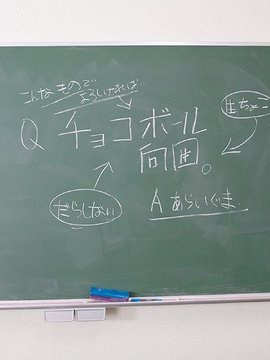 こんな もので
よろしければ…
Q チョコボール
向囲。
だらしない
A あらいぐま